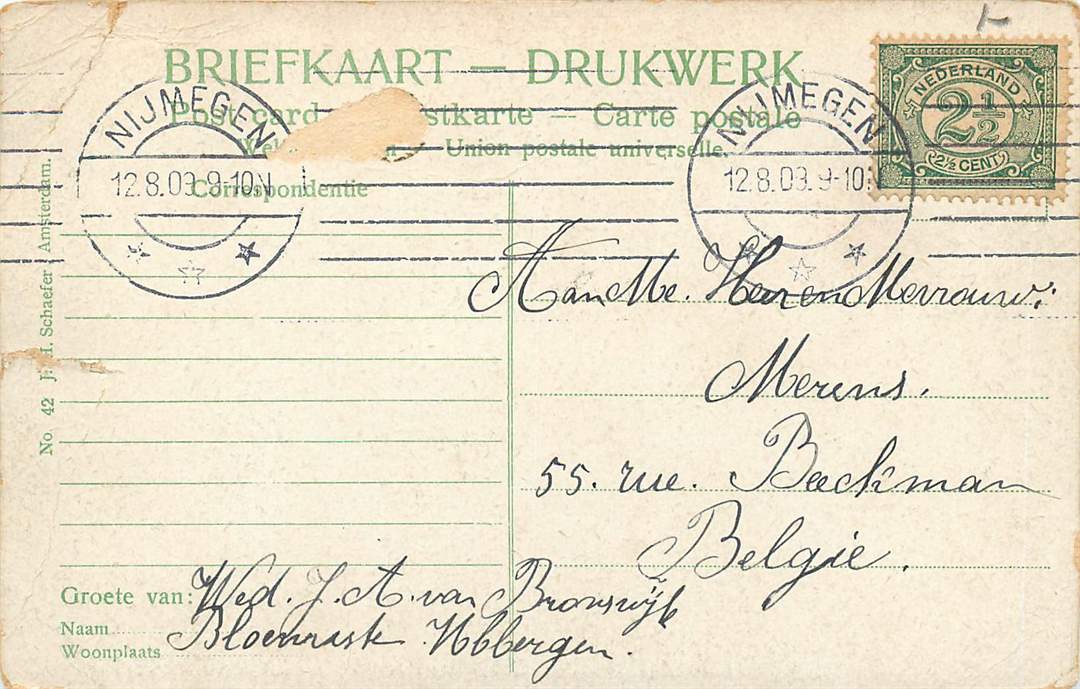 BRIEFKAART — DRUKWERK
Post card stkarte — Carte postale
Wel n — Union postale universelle.
Correspondentie
NIJMEGEN
12.8.09.9-10N
NIJMEGEN
12.8.09.9-10N
NEDERLAND
2½
2½ CENT
No. 42 J. H. Schaefer Amsterdam.
Aan Me. Heer en Mevrouw:
Merens.
55. rue. Beckman
Belgie.
Groete van: Wed. J. A. van Bronswijk
Naam
Bloemrast Ubbergen.
Woonplaats